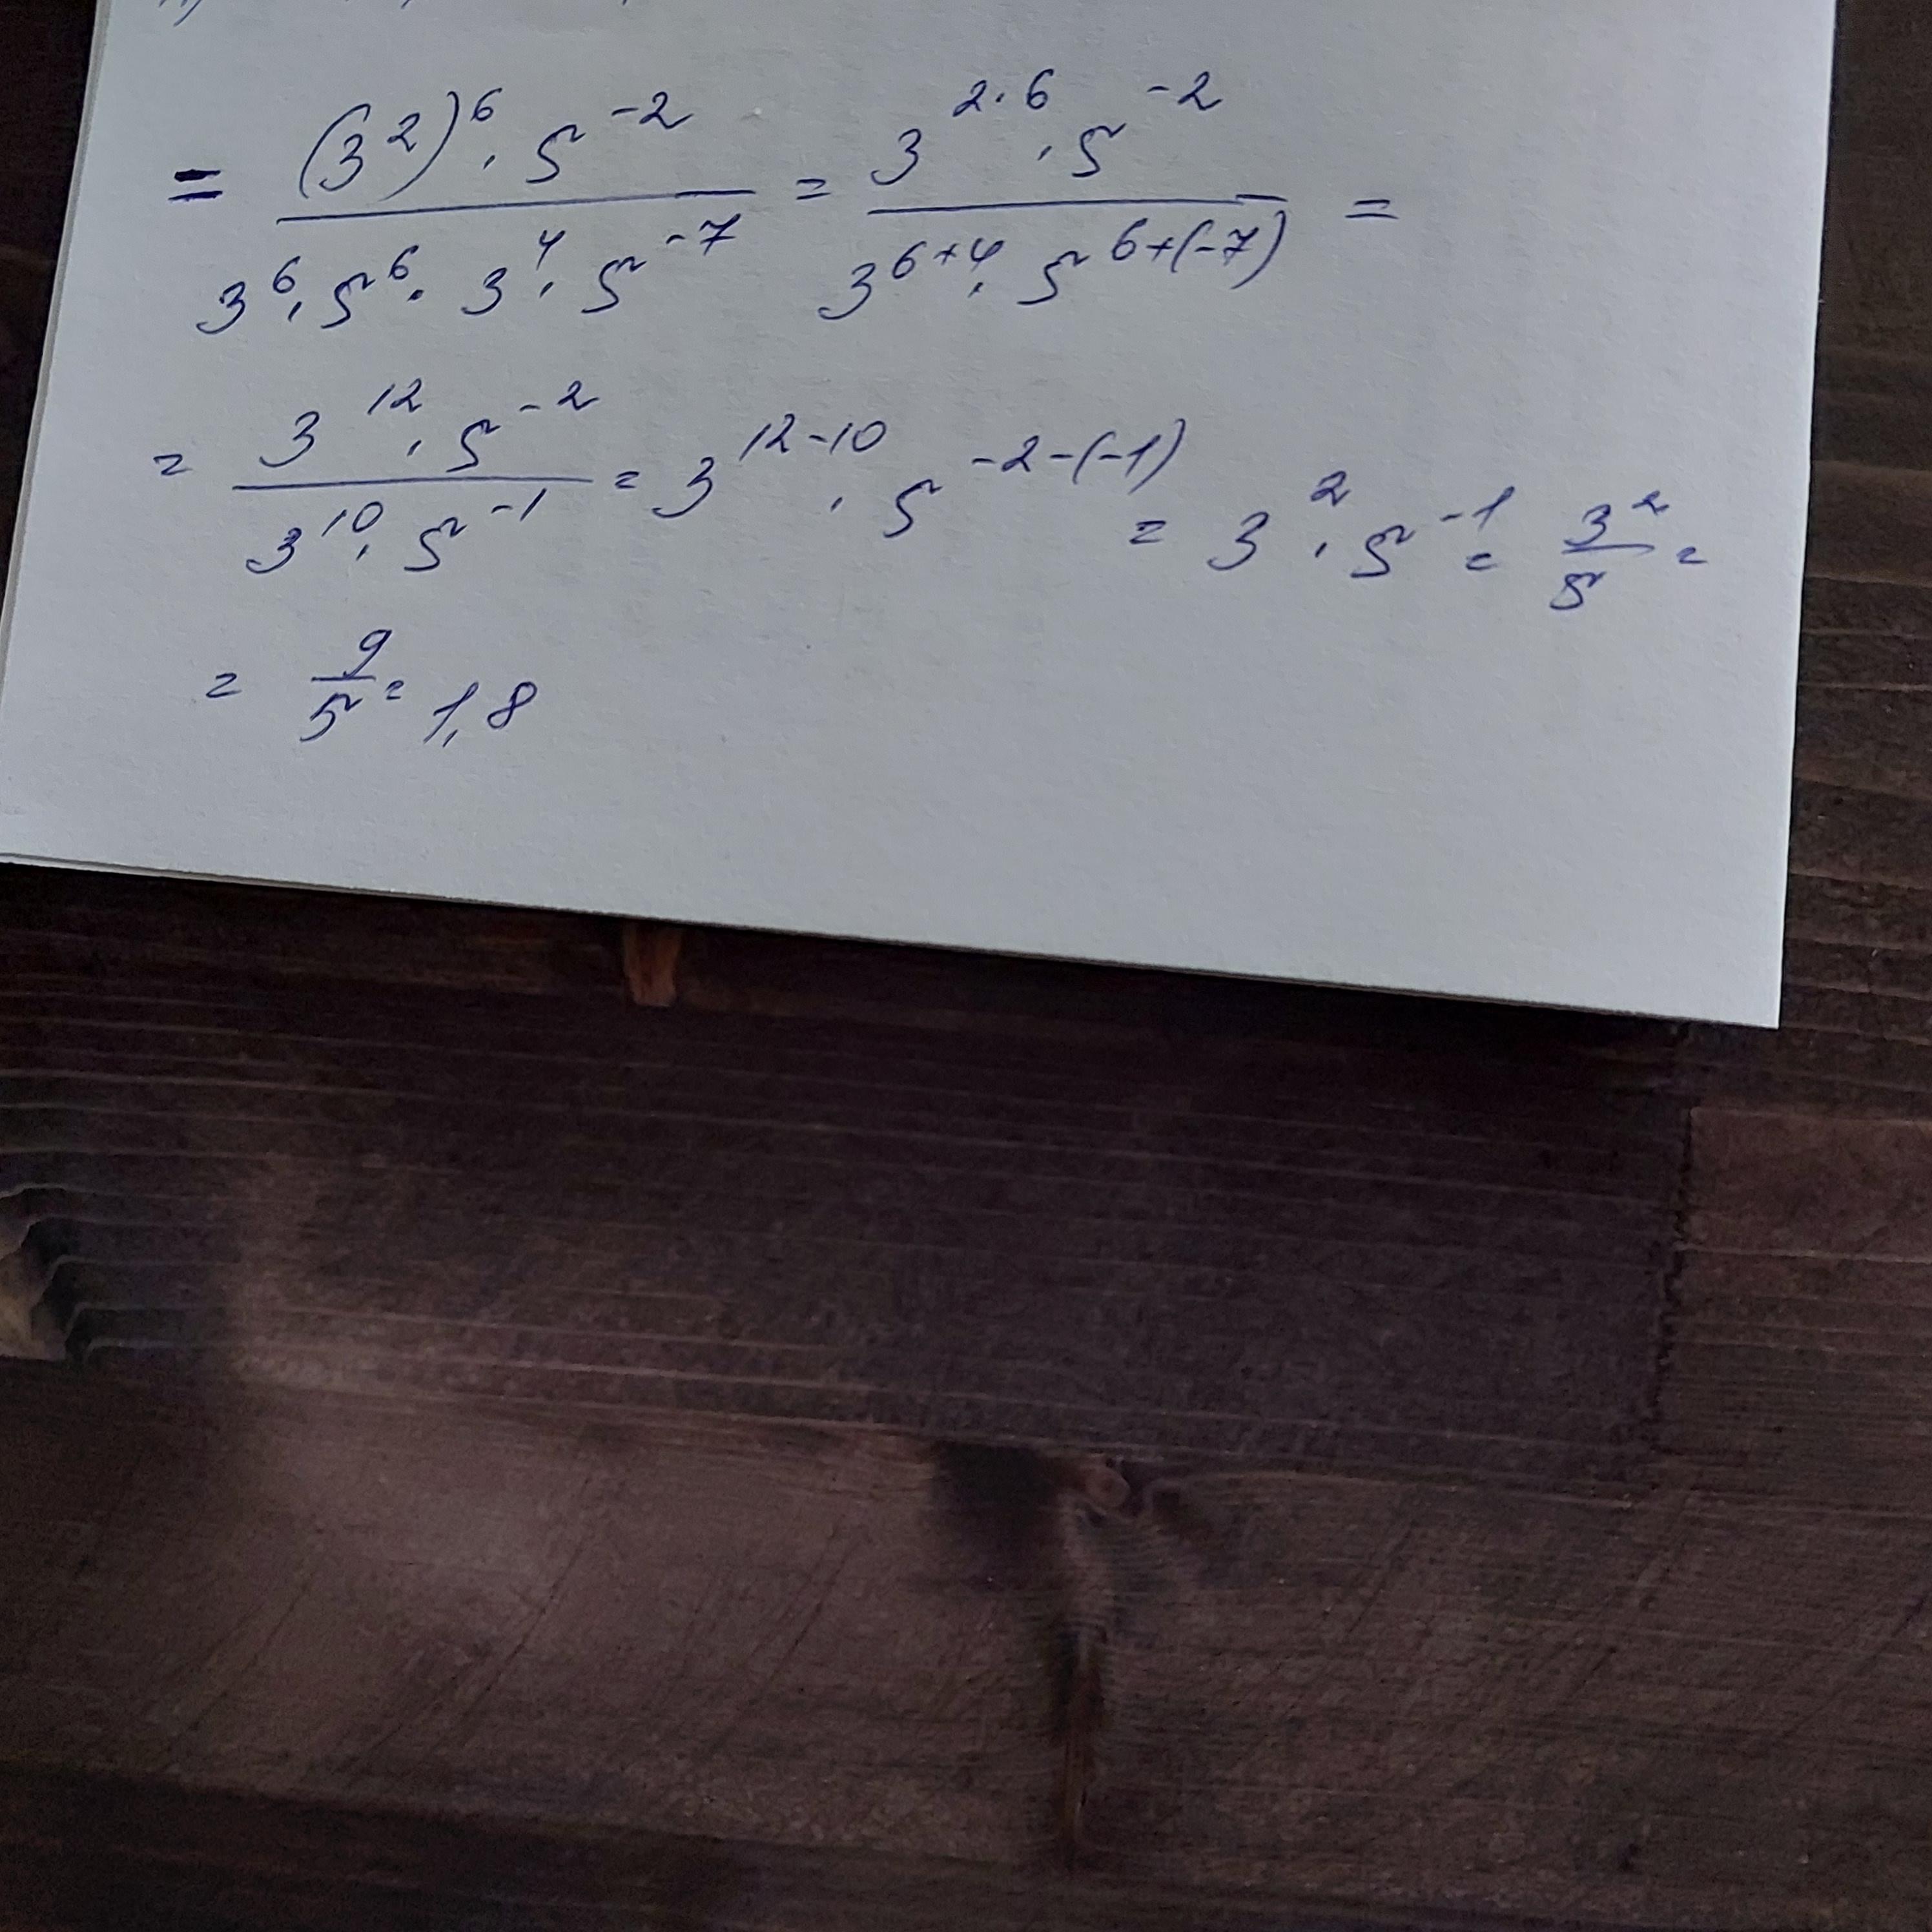 = ((3^2)^6 · 5^-2)/(3^6 · 5^6 · 3^4 · 5^-7) = (3^(2·6) · 5^-2)/(3^(6+4) · 5^(6+(-7))) =
= (3^12 · 5^-2)/(3^10 · 5^-1) = 3^(12-10) · 5^(-2-(-1)) = 3^2 · 5^-1 = 3^2/5 =
= 9/5 = 1,8